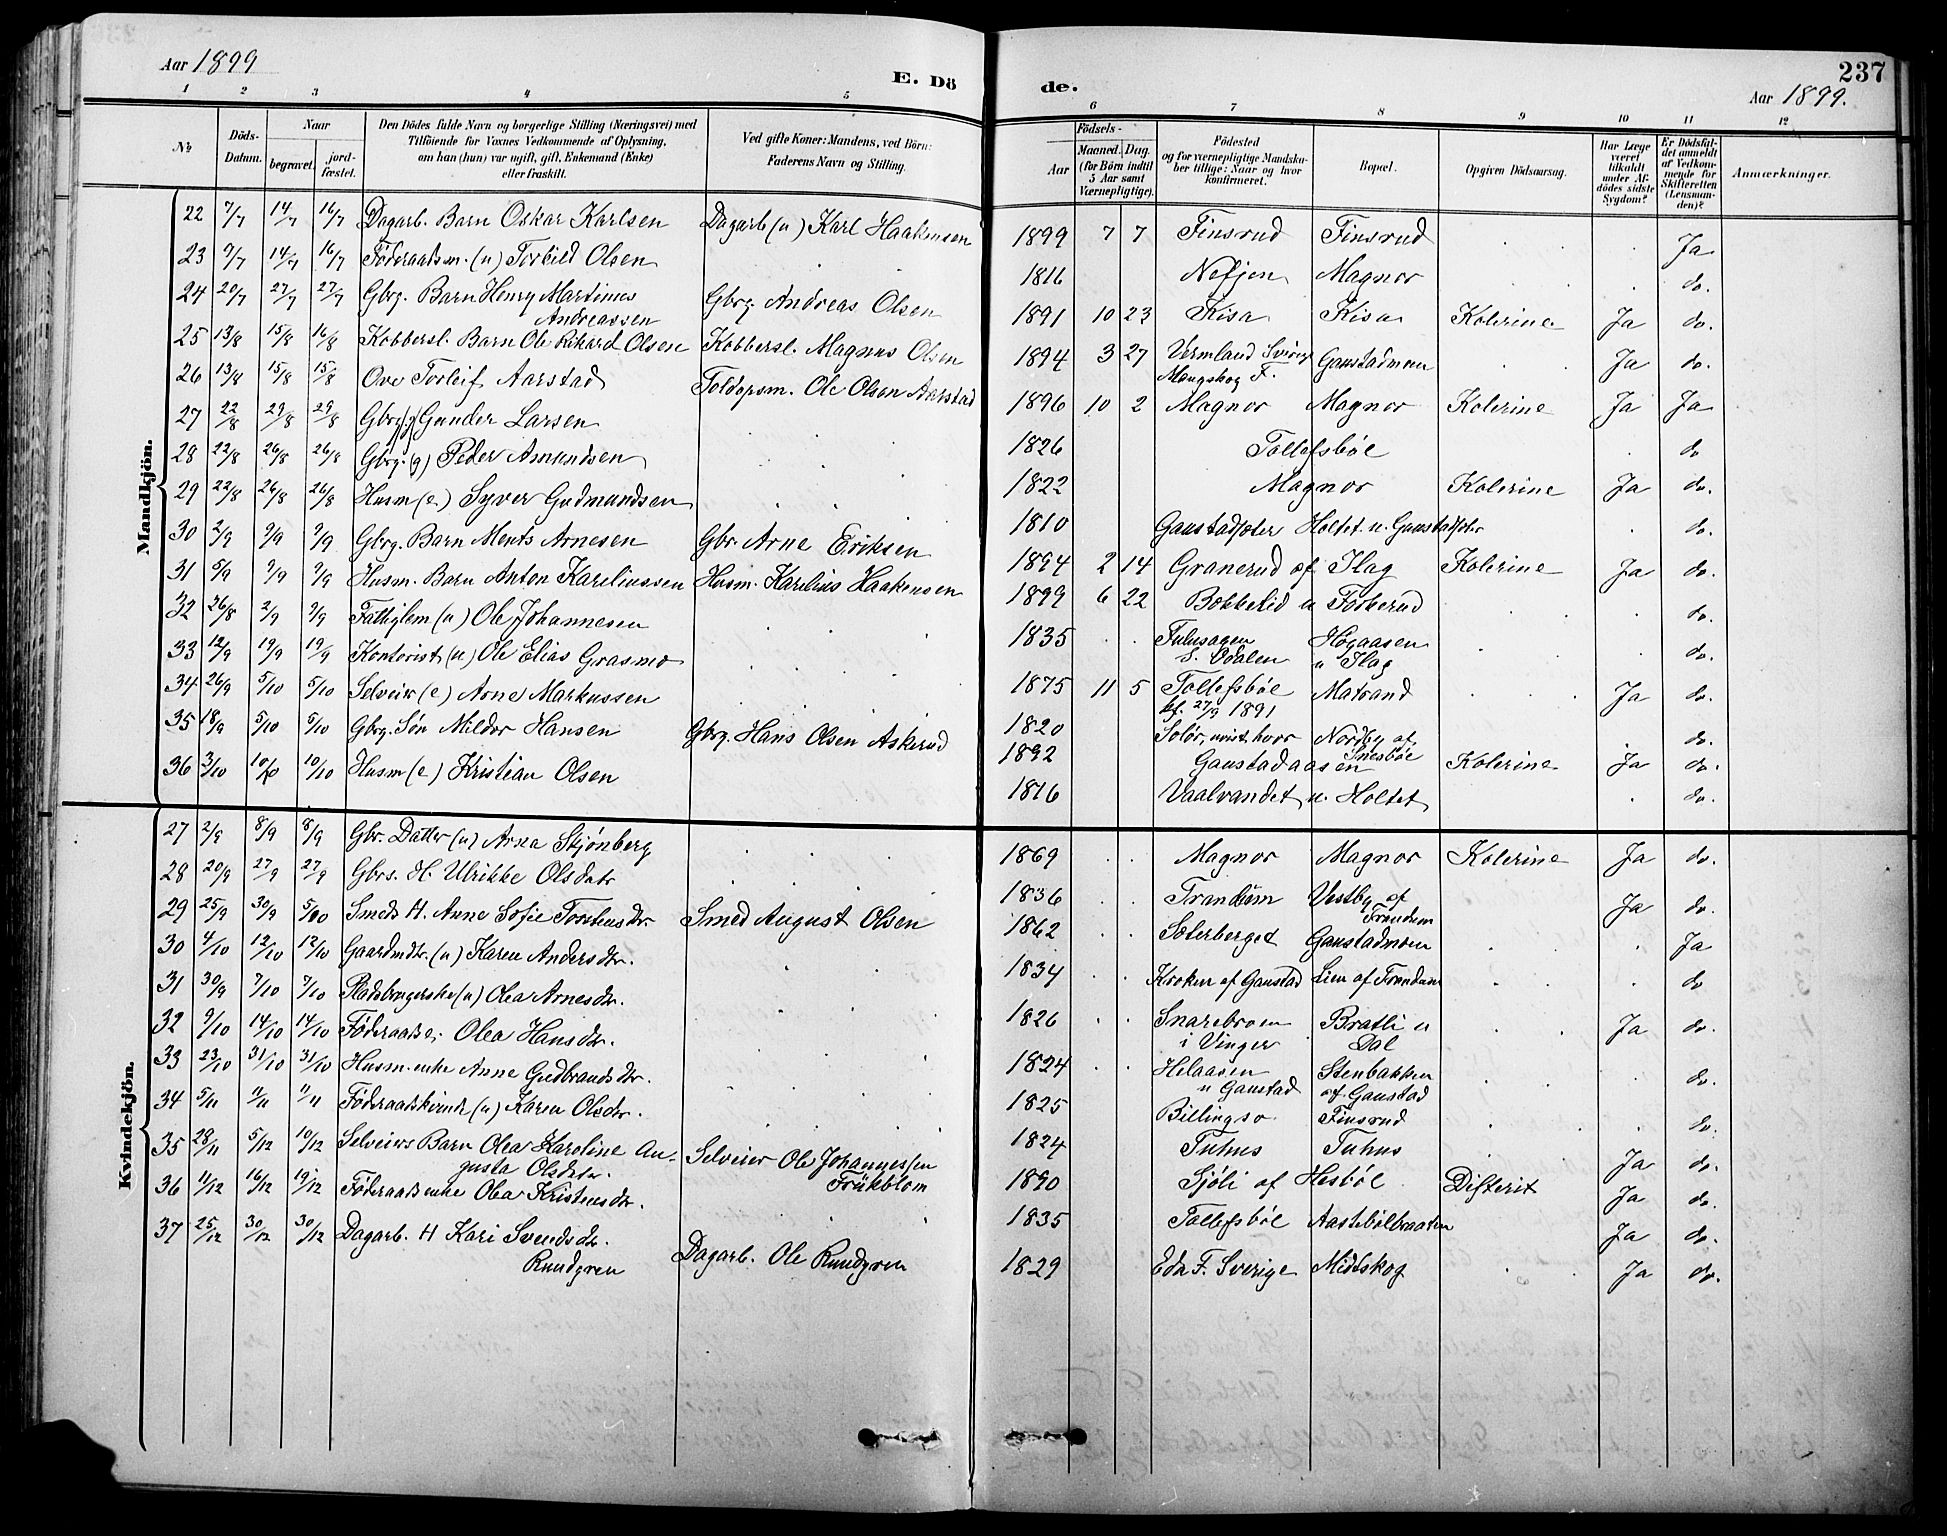 Aar 1899
E. Dö
de.
237
Aar 1899.
1 2 3 4 5 6 7 8 9 10 11 12
No
Döds-Datum.
Naar
begravet.
jord-fæstet.
Den Dödes fulde Navn og borgerlige Stilling (Næringsvei) med
Tilföiende for Voxnes Vedkommende af Oplysning,
om han (hun) var ugift, gift, Enkemand (Enke)
eller fraskilt.
Ved gifte Koner: Mandens, ved Börn:
Faderens Navn og Stilling.
Födsels-
Aar
Maaned. Dag.
(for Börn indtil
5 Aar samt
Værnepligtige).
Födested
og for værnepligtige Mandska-
ber tillige: Naar og hvor
konfirmeret.
Bopæl.
Opgiven Dödsaarsag.
Har Læge
været
tilkaldt
under Af-
dödes sidste
Sygdom?
Er Dödsfal-
det anmeldt
af Vedkom-
mende for
Skifteretten
(Lensman-
den)?
Anmærkninger.
Mandkjön.
22 7/7 14/7 16/7 Dagarb. Barn Oskar Karlsen Dagarb (u) Karl Haakensen 1899 7 7 Finsrud Finsrud Ja
23 9/7 14/7 16/7 Föderaadsm. (u) Torbild Olsen 1816 Nefjen Magnor do.
24 20/7 27/7 27/7 Gbrg. Barn Henry Martinus Gbrg. Andreas Olsen 1891 10 23 Kisa Kisa Kolerine Ja do.
Andreassen
25 13/8 15/8 16/8 Kobbersl. Barn Ole Rikard Olsen Kobbersl. Magnus Olsen 1894 3 27 Vermland Sverige Gaustadmoen Ja do.
Mangskog F.
26 13/8 15/8 15/8 Ove Torleif Aarstad Toldopsm. Ole Olsen Aarstad 1896 10 2 Magnor Magnor Kolerine Ja Ja
27 22/8 29/8 29/8 Gbrg. (g) Gunder Larsen 1826 Tollefsböl do
28 22/8 26/8 26/8 Gbrg. (g) Peder Amundsen 1822 Magnor Kolerine Ja do.
29 22/8 26/8 26/8 Husm (e) Syver Gudmundsen 1810 Gaustadsæter Holtet u. Gaustadsæter do.
30 2/9 9/9 9/9 Gbrg. Barn Ments Arnesen Gbr. Arne Eriksen 1894 2 14 Granerud af Ilag Kolerine Ja do.
31 5/9 9/9 9/9 Husm. Barn Anton Kareliussen Husm. Karelius Haakensen 1899 6 22 Bekkelid u Foskerud do.
32 26/8 2/9 9/9 Fattiglem (u) Ole Johannesen 1835 Högaasen do.
S. Odalen u Ilag
33 12/9 19/9 19/9 Kontorist (u) Ole Elias Grasmo 1875 11 5 Tollefsböl Matrand Ja do.
kf. 27/9 1891
34 26/9 5/10 5/10 Selveier (e) Arne Markussen 1820 Solör, uvist hvor Nordby af do.
Snesböl
35 18/9 5/10 5/10 Gbrg. Sön Mildor Hansen Gbrg. Hans Olsen Askerud 1892 Gaustadaasen Kolerine Ja do.
36 3/10 10/10 10/10 Husm (e) Kristian Olsen 1816 Vaalvandet u. Holtet do.
Kvindekjön.
27 2/9 8/9 8/9 Gbr. Datter (u) Arna Stjönberg 1869 Magnor Magnor Kolerine Ja do.
28 20/9 27/9 27/9 Gbrs. H. Ulrikke Olsdatr 1836 Trandum Vestby af Ja do.
Trandum
29 25/9 30/9 5/10 Smeds H. Anne Sofie Torstensdr. Smed August Olsen 1862 Sæterberget Gaustadmoen Ja
30 4/10 12/10 12/10 Gaardmdr. (u) Karen Andersdr. 1834 Kroken af Gaustad Lien af Trandum do
31 30/9 7/10 7/10 Pladsbrugerske (u) Olea Arnesdr. 1826 Snarebroen Bratli u Ja do.
i Vinger Dal
32 9/10 14/10 14/10 Föderaadse. Olea Hansdr. 1824 Helaasen Stenbakken do.
u Gaustad af. Gaustad
33 23/10 31/10 31/10 Husm. enke Anne Gudbrandsdr. 1825 Billingso Finsrud do.
34 5/11 11/11 11/11 Föderaadskvinde (u) Karen Olsdr. 1824 Tuhus Tuhus Ja do.
35 28/11 5/12 10/12 Selveiers Barn Olea Karoline Au- Selveier Ole Johannessen 1890 Sjöli af Hesböl Difterit Ja do.
gusta Olsdatr. Trükblom
36 11/12 16/12 19/12 Föderaadsenke Olea Kristensdr. 1835 Tollefsböl Aastebölbraaten Ja do.
37 25/12 30/12 30/12 Dagarb. H Kari Svendsdr. Dagarb. Ole Rundgren 1829 Eda F. Sverige Midtskog Ja do.
Rundgren